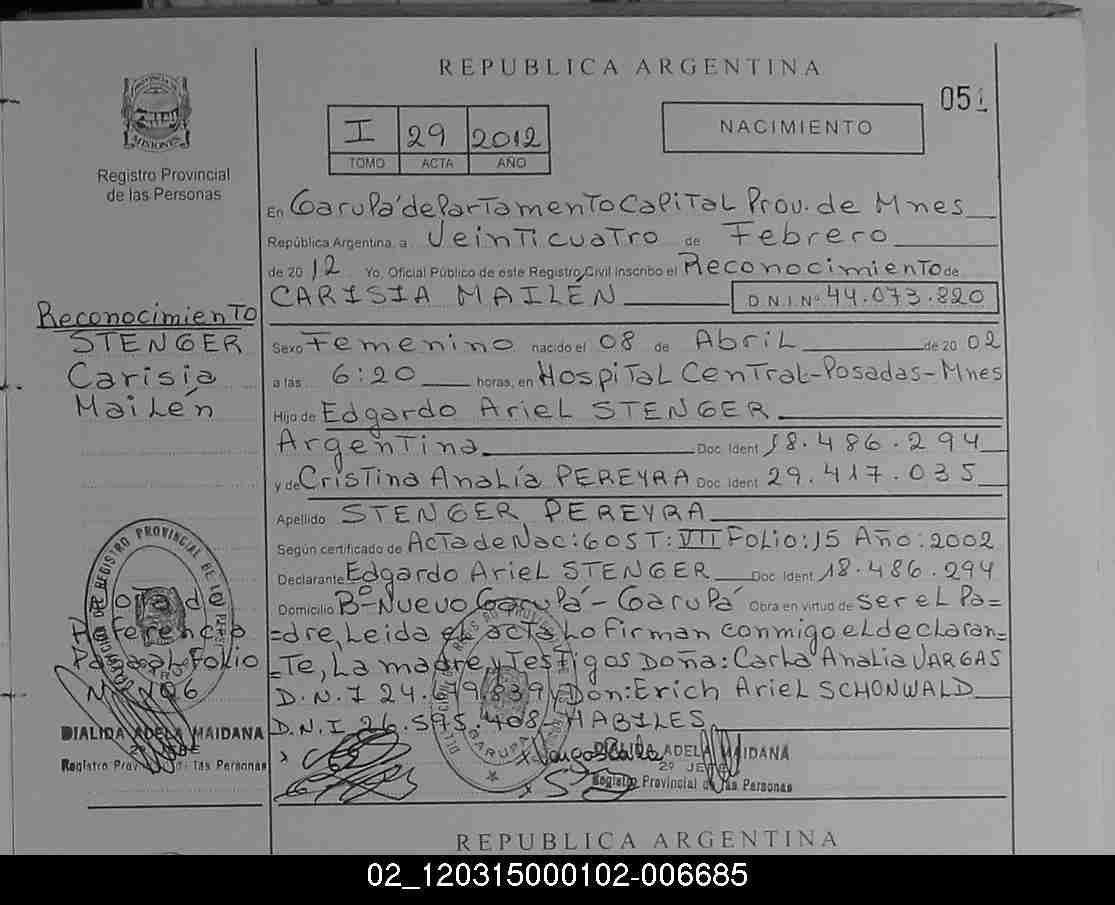 REPUBLICA ARGENTINA
051
I 29 2012
TOMO ACTA AÑO
NACIMIENTO
MISIONES
Registro Provincial
de las Personas
En Garupá departamento Capital Prov. de Mnes
República Argentina, a Veinticuatro de Febrero
de 2012 Yo, Oficial Público de este Registro Civil inscribo el Reconocimiento de
CARISIA MAILÉN D.N.I.Nº 44.073.820
Reconocimiento
STENGER
Carisia
Mailén
Sexo Femenino nacido el 08 de Abril de 20 02
a las 6:20 horas, en Hospital Central-Posadas-Mnes
Hija de Edgardo Ariel STENGER
Argentina Doc. Ident 18.486.294
y de Cristina Analía PEREYRA Doc. Ident 29.417.035
Apellido STENGER PEREYRA
Según certificado de Acta de Nac: 605 T: VII Folio: 15 Año: 2002
Declarante Edgardo Ariel STENGER Doc. Ident 18.486.294
Domicilio Bº Nuevo Garupá - Garupá Obra en virtud de ser el Pa=
=dre, Leida el acta Lo firman conmigo el declaran=
=Te, La madre y Testigos Doña: Carla Analia VARGAS
D.N.I 24.679.839 y Don: Erich Ariel SCHONWALD
D.N.I 26.595.408 HABILES
Nota de
Referencia
Folio
DIALIDA ADELA MAIDANA
2º JEFE
Registro Provincial de las Personas
Vargas Carla
DIALIDA ADELA MAIDANA
2º JEFE
Registro Provincial de las Personas
GARUPA
REPUBLICA ARGENTINA
02_120315000102-006685